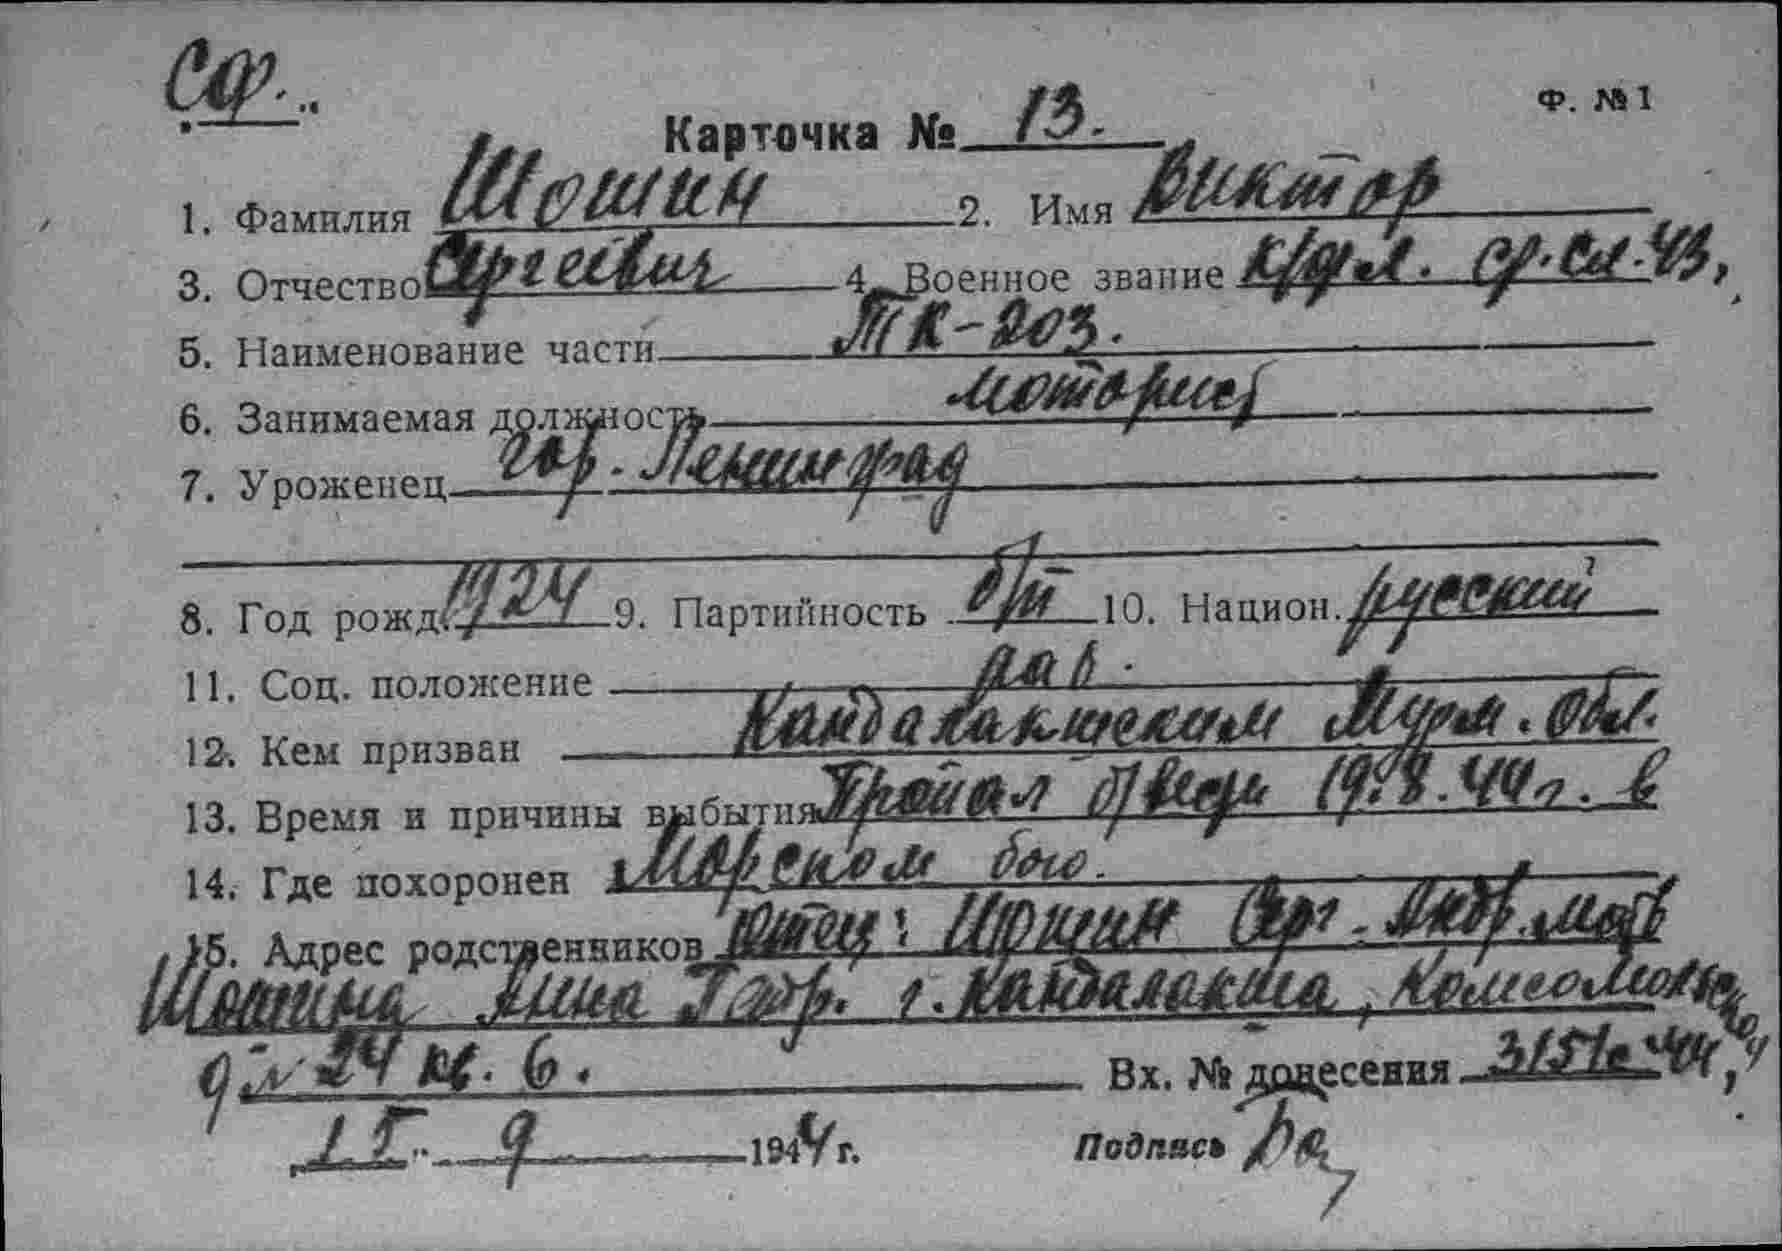 Сф.
Ф. №1
Карточка № 13.
1. Фамилия Шошин 2. Имя Виктор
3. Отчество Сергеевич 4. Военное звание к/фл. ср. сл. 43,
5. Наименование части ТК-203.
6. Занимаемая должность моторист
7. Уроженец гор. Ленинград
8. Год рожд. 1924 9. Партийность б/п 10. Национ. русский
11. Соц. положение раб.
12. Кем призван Кандалакшским Мурм. обл.
13. Время и причины выбытия Пропал 19.8.44 г. в
14. Где похоронен Морском бою.
15. Адрес родственников Отец: Шошин Серг. Андр. мать
Шошина Анна г. Кандалакша, Комсомольская
24 кв. 6. Вх. № донесения 44
15. 9 1944 г. Подпись